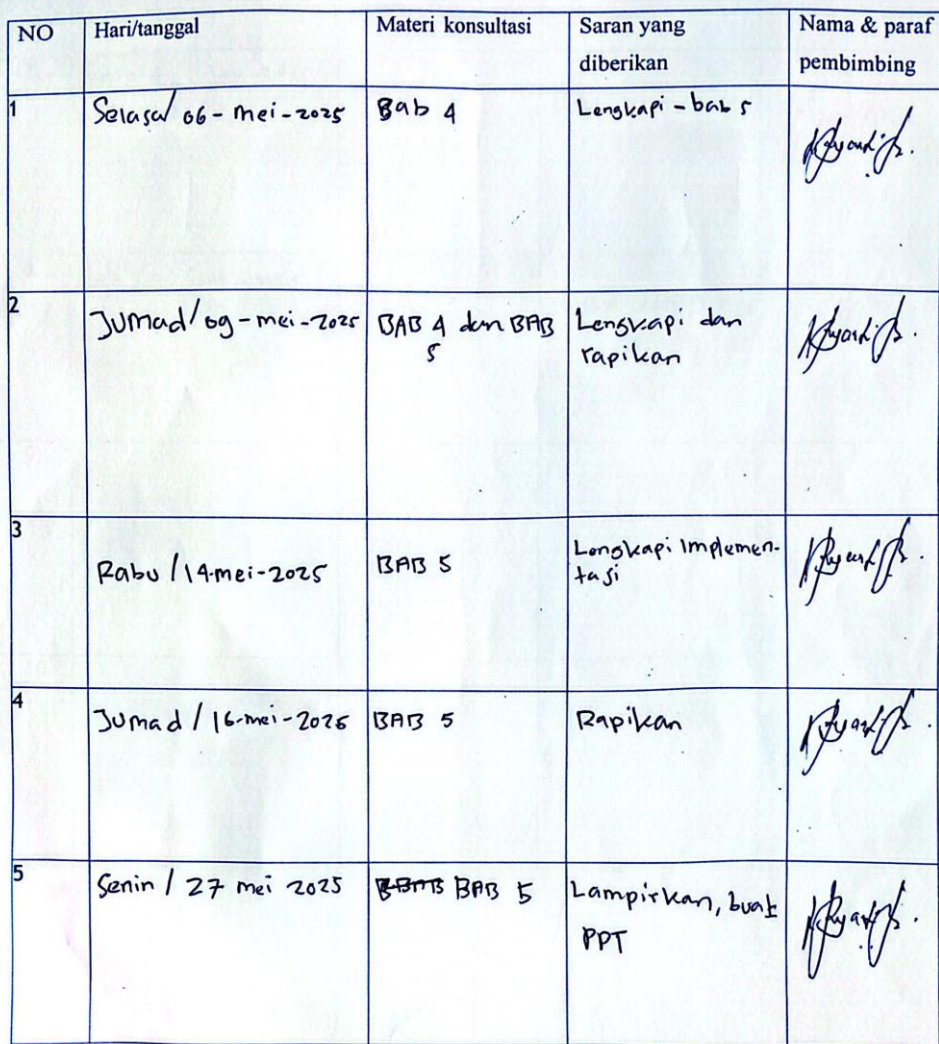 NO Hari/tanggal Materi konsultasi Saran yang Nama & paraf
diberikan pembimbing
1 Selasa/ 06 - mei - 2025 Bab 4 Lengkapi - bab 5
2 Jumad / 09 - mei - 2025 BAB 4 dan BAB Lengkapi dan
5 rapikan
3 Rabu / 14-mei-2025 BAB 5 Lengkapi Implemen-
tasi
4 Jumad / 16-mei-2025 BAB 5 Rapikan
5 Senin / 27 mei 2025 BAB 5 Lampirkan, buat
PPT